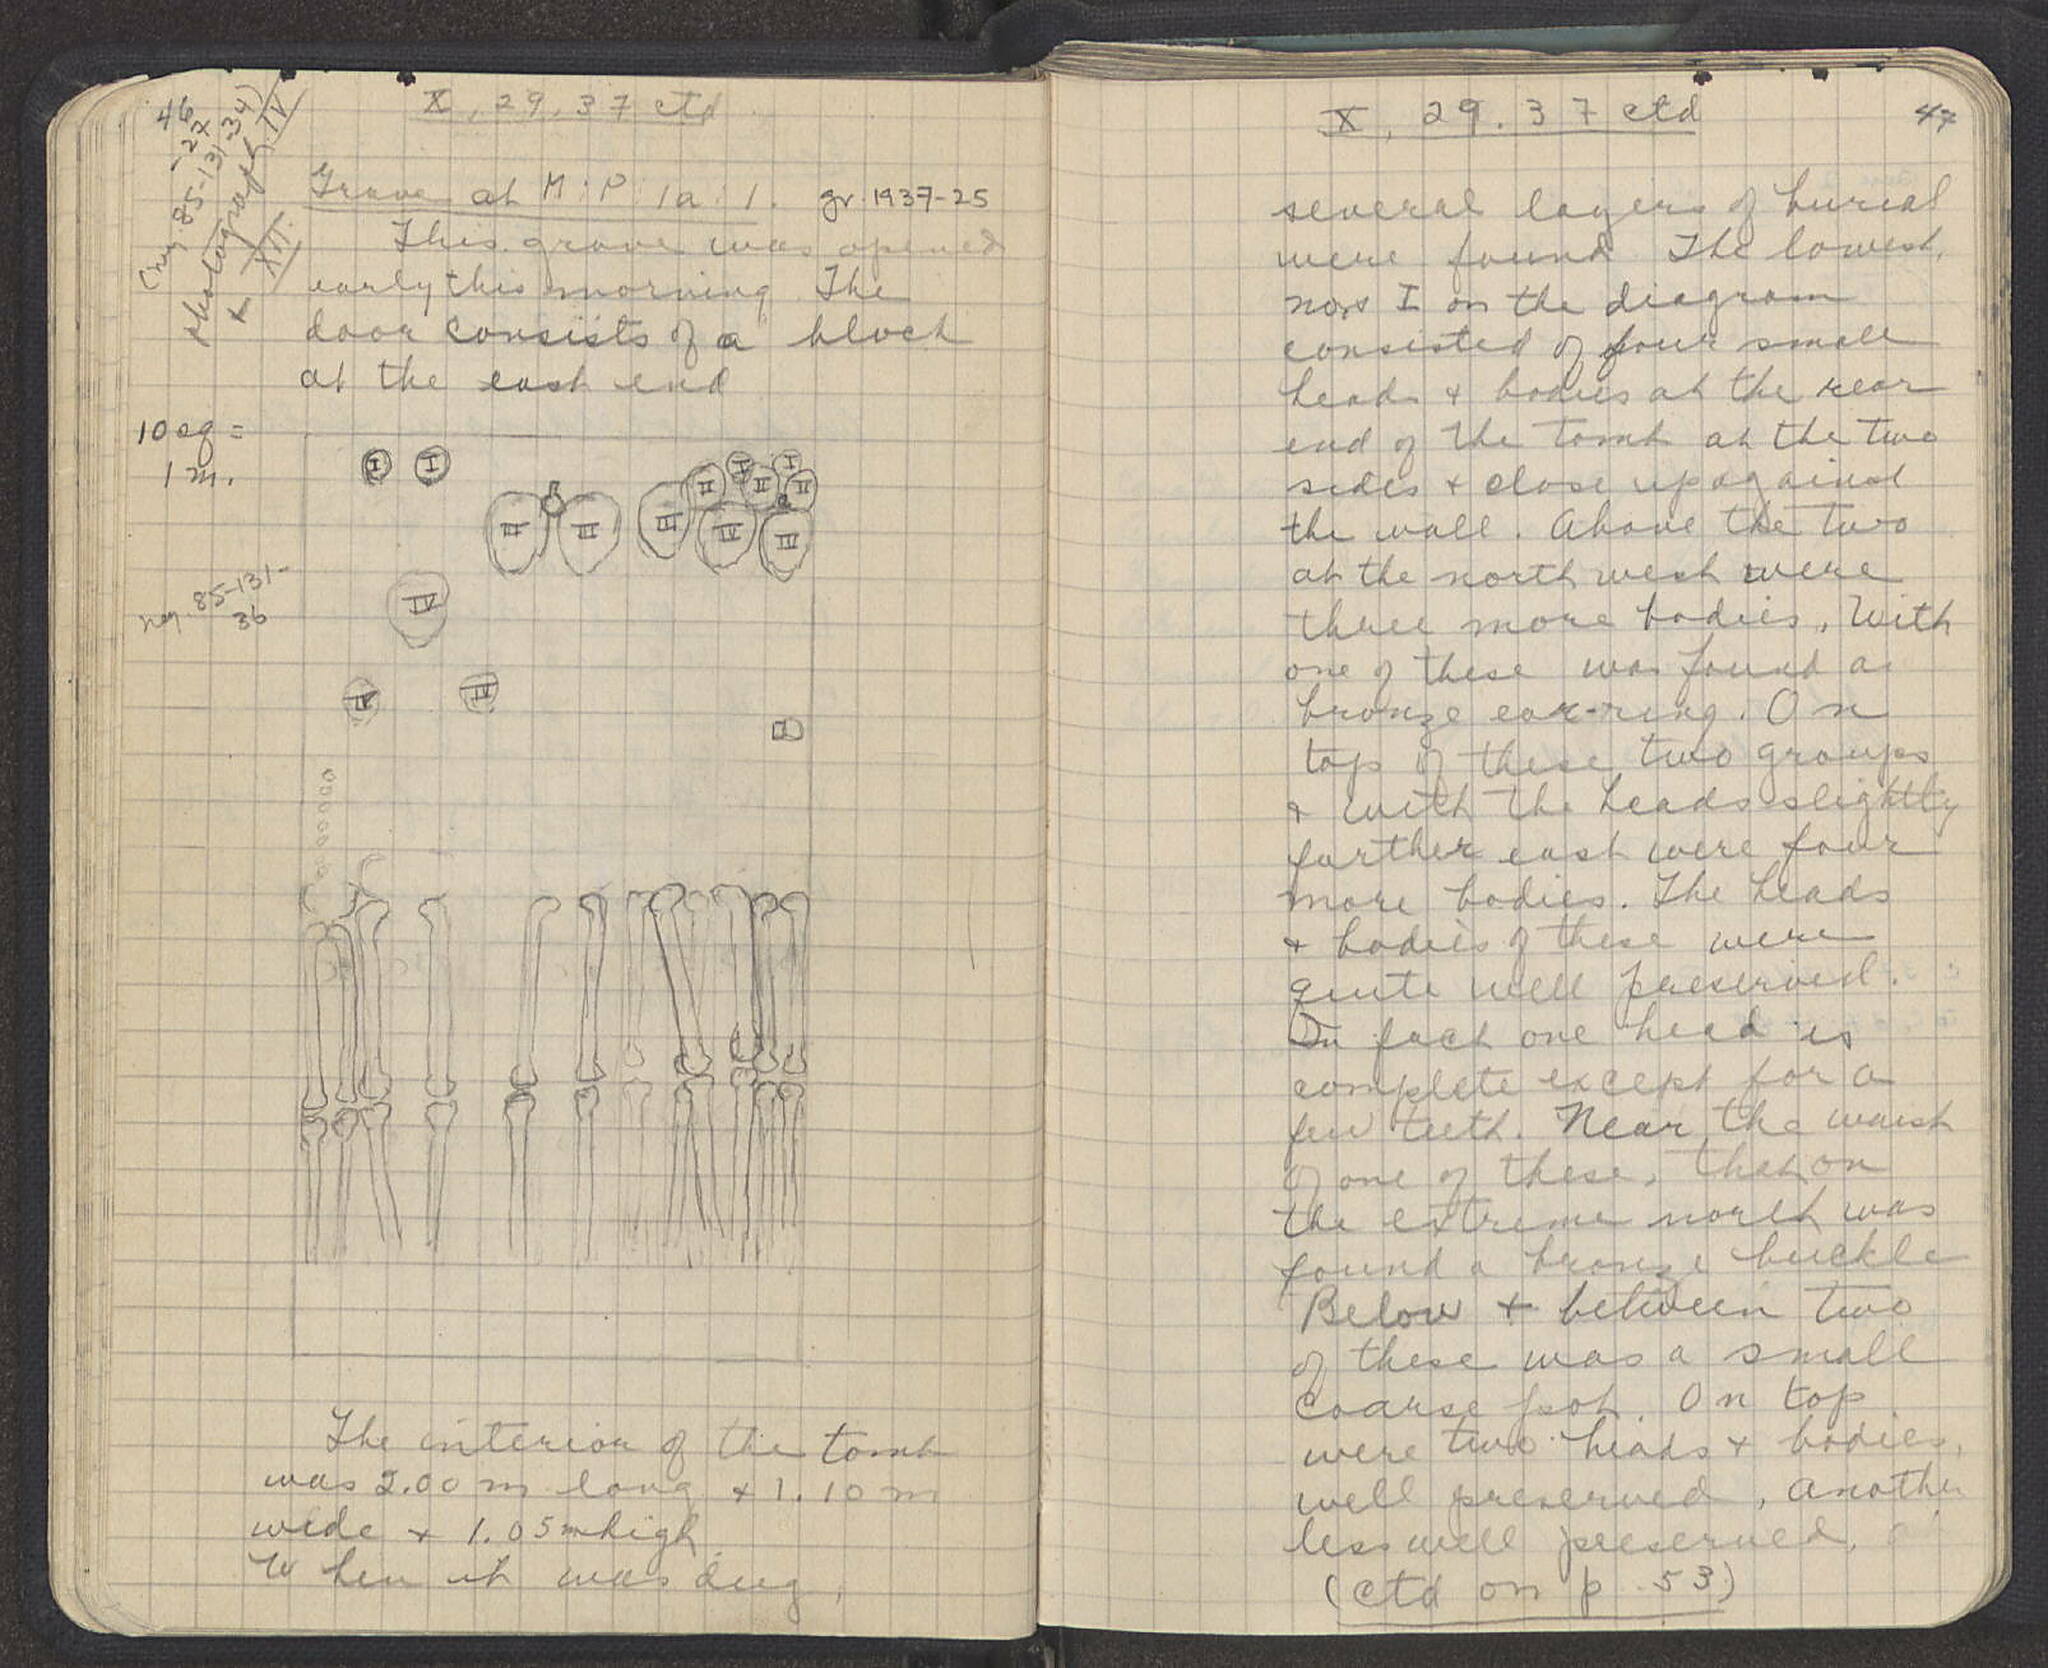 46
X, 29, 37 ctd
(neg. 85-131-34)
-27
photograph IV
+ XII.
Grave at M:P:1a:1. gr. 1937-25
This grave was opened
early this morning The
door consists of a block
at the east end
10 sq =
1 m.
I I I I
II II II
III III III IV III
IV
neg. 85-131-
36
IV IV
The interior of the tomb
was 2.00 m long + 1.10 m
wide + 1.05 m high
When it was dug,
X, 29. 37 ctd
47
several layers of burial
were found The lowest,
nos I on the diagram
consisted of four small
heads + bodies at the rear
end of the tomb at the two
sides + close up against
the wall. Above the two
at the north west were
three more bodies. With
one of these was found a
bronze ear-ring. On
top of these two groups
+ with the heads slightly
further east were four
more bodies. The heads
+ bodies of these were
quite well preserved.
In fact one head is
complete except for a
few teeth. Near the waist
of one of these, that on
the extreme north was
found a bronze buckle
Below + between two
of these was a small
coarse pot. On top
were two heads + bodies,
well preserved, another
less well preserved,
(ctd on p. 53)